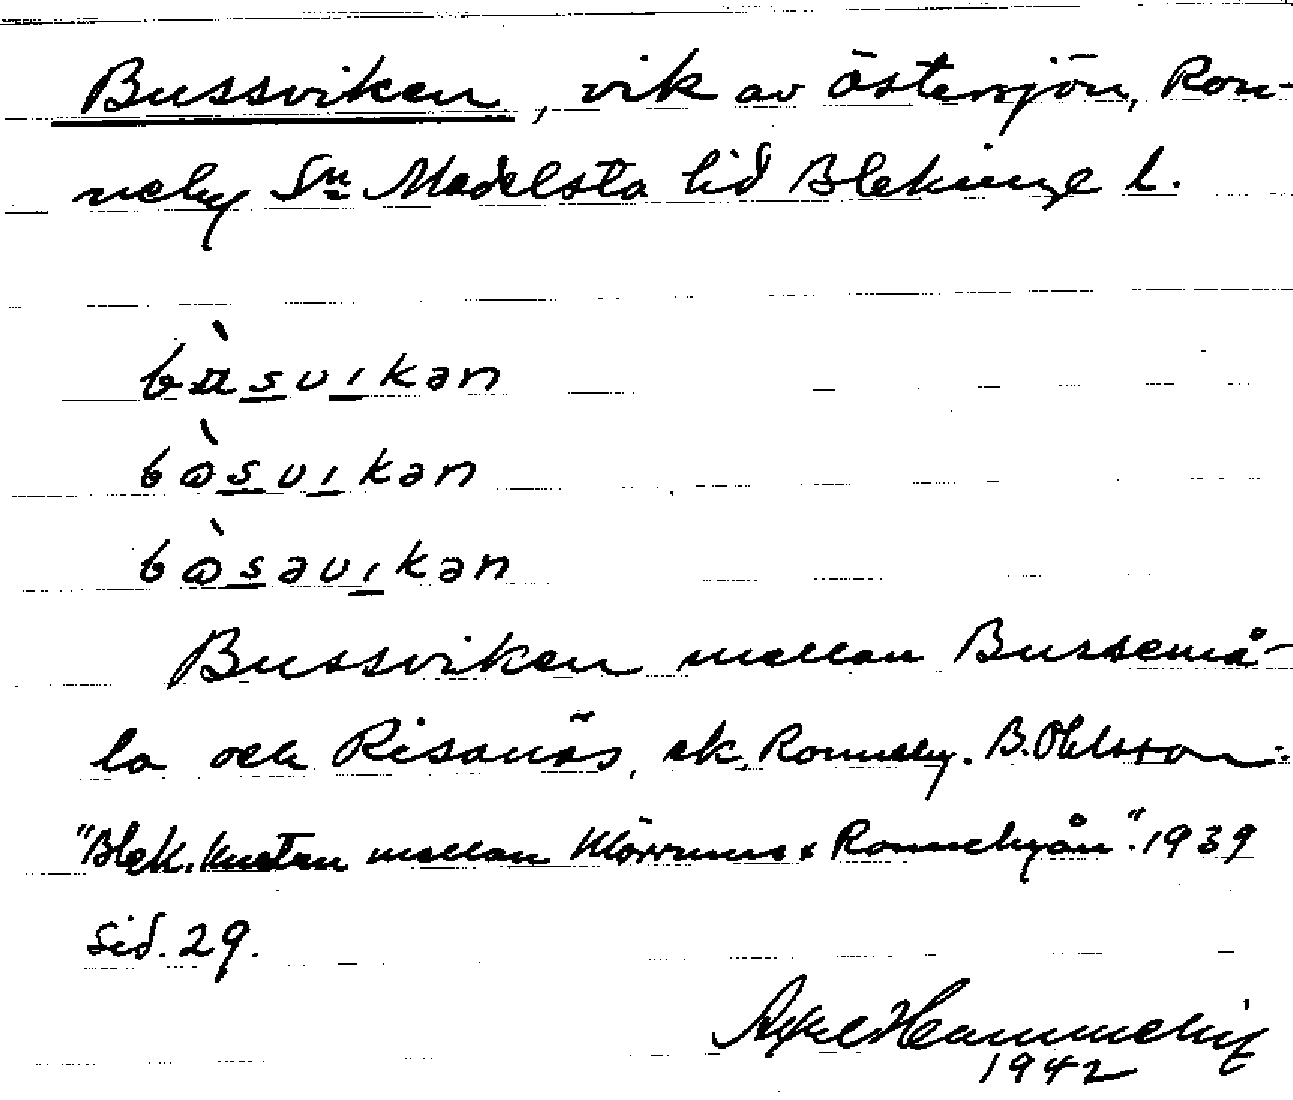 Bussviken, vik av Östersjön, Ron-
neby Sn Medelsta hd Blekinge l.
bùsvikən
bòsvikən
bòsəvikən
Bussviken mellan Bussemå-
la och Risanäs, sk. Ronneby. B. Ohlsson:
"Blek. kusten mellan Mörrums & Ronnebyån". 1939
Sid. 29.
Axel
1942